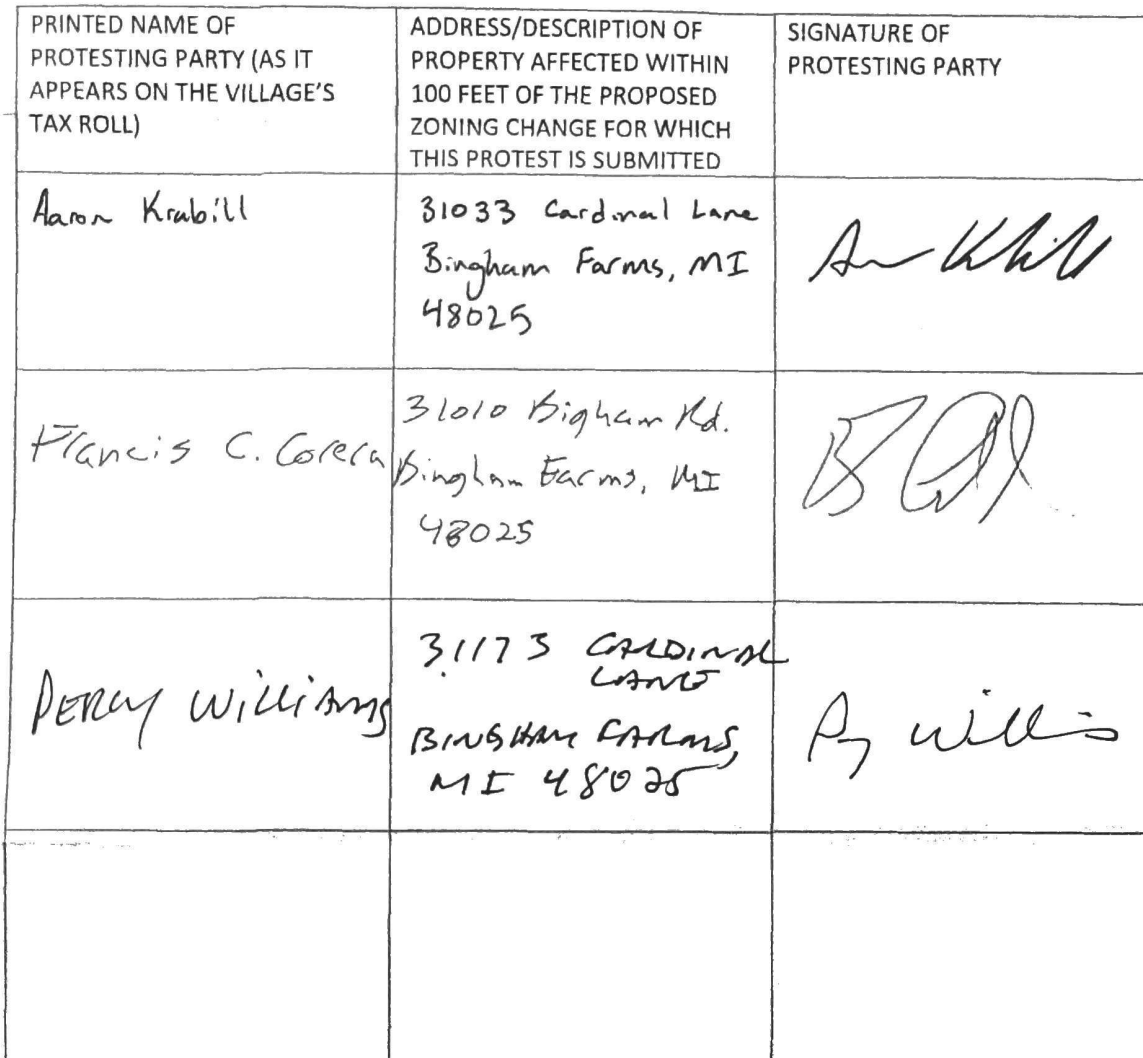 PRINTED NAME OF
PROTESTING PARTY (AS IT
APPEARS ON THE VILLAGE'S
TAX ROLL)
ADDRESS/DESCRIPTION OF
PROPERTY AFFECTED WITHIN
100 FEET OF THE PROPOSED
ZONING CHANGE FOR WHICH
THIS PROTEST IS SUBMITTED
SIGNATURE OF
PROTESTING PARTY
Aaron Krabill
31033 Cardinal Lane
Bingham Farms, MI
48025
Francis C. Corera
31010 Bigham Rd.
Bingham Farms, MI
48025
PERCY WILLIAMS
31173 CARDINAL
LANE
BINGHAM FARMS,
MI 48025